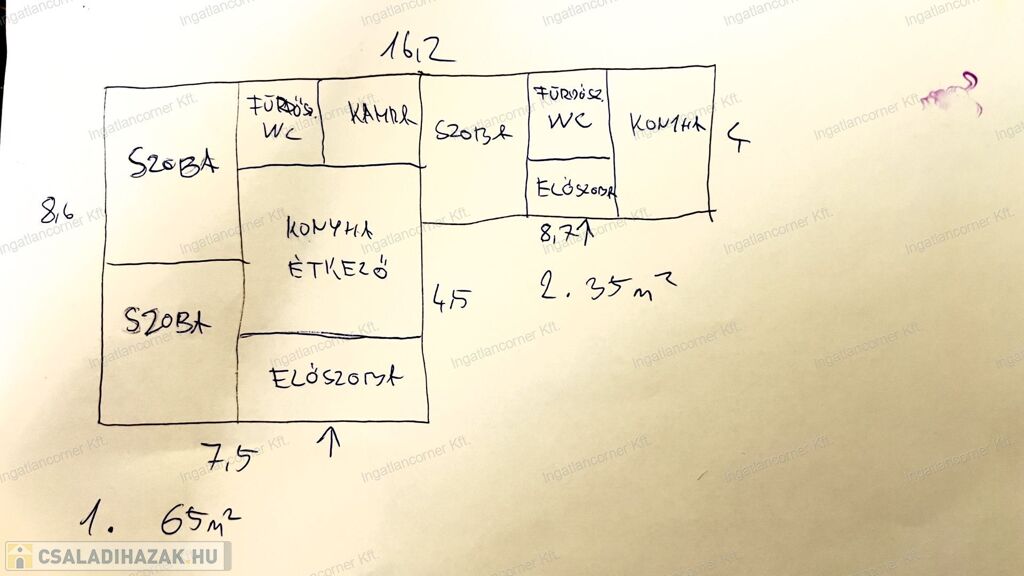 16,2
FÜRDŐSZ.
WC
KAMRA
SZOBA
SZOBA
FÜRDŐSZ.
WC
KONYHA
4
SZOBA
ELŐSZOBA
8,6
KONYHA
ÉTKEZŐ
8,7
2. 35m²
4,5
SZOBA
ELŐSZOBA
7,5
1. 65m²
CSALADIHAZAK.HU
Ingatlancorner Kft.